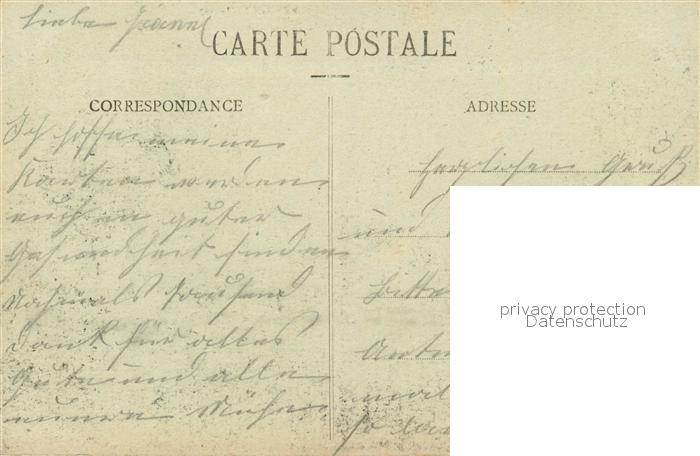 Liebe
CARTE POSTALE
CORRESPONDANCE
ADRESSE
Ich hoffe meine
Karten werden
euch in guter
Gesundheit finden
Nochmals tausend
Dank für alles
Gute und alle
Mühe
herzlichen Gruß
und
Bitte
so
privacy protection
Datenschutz